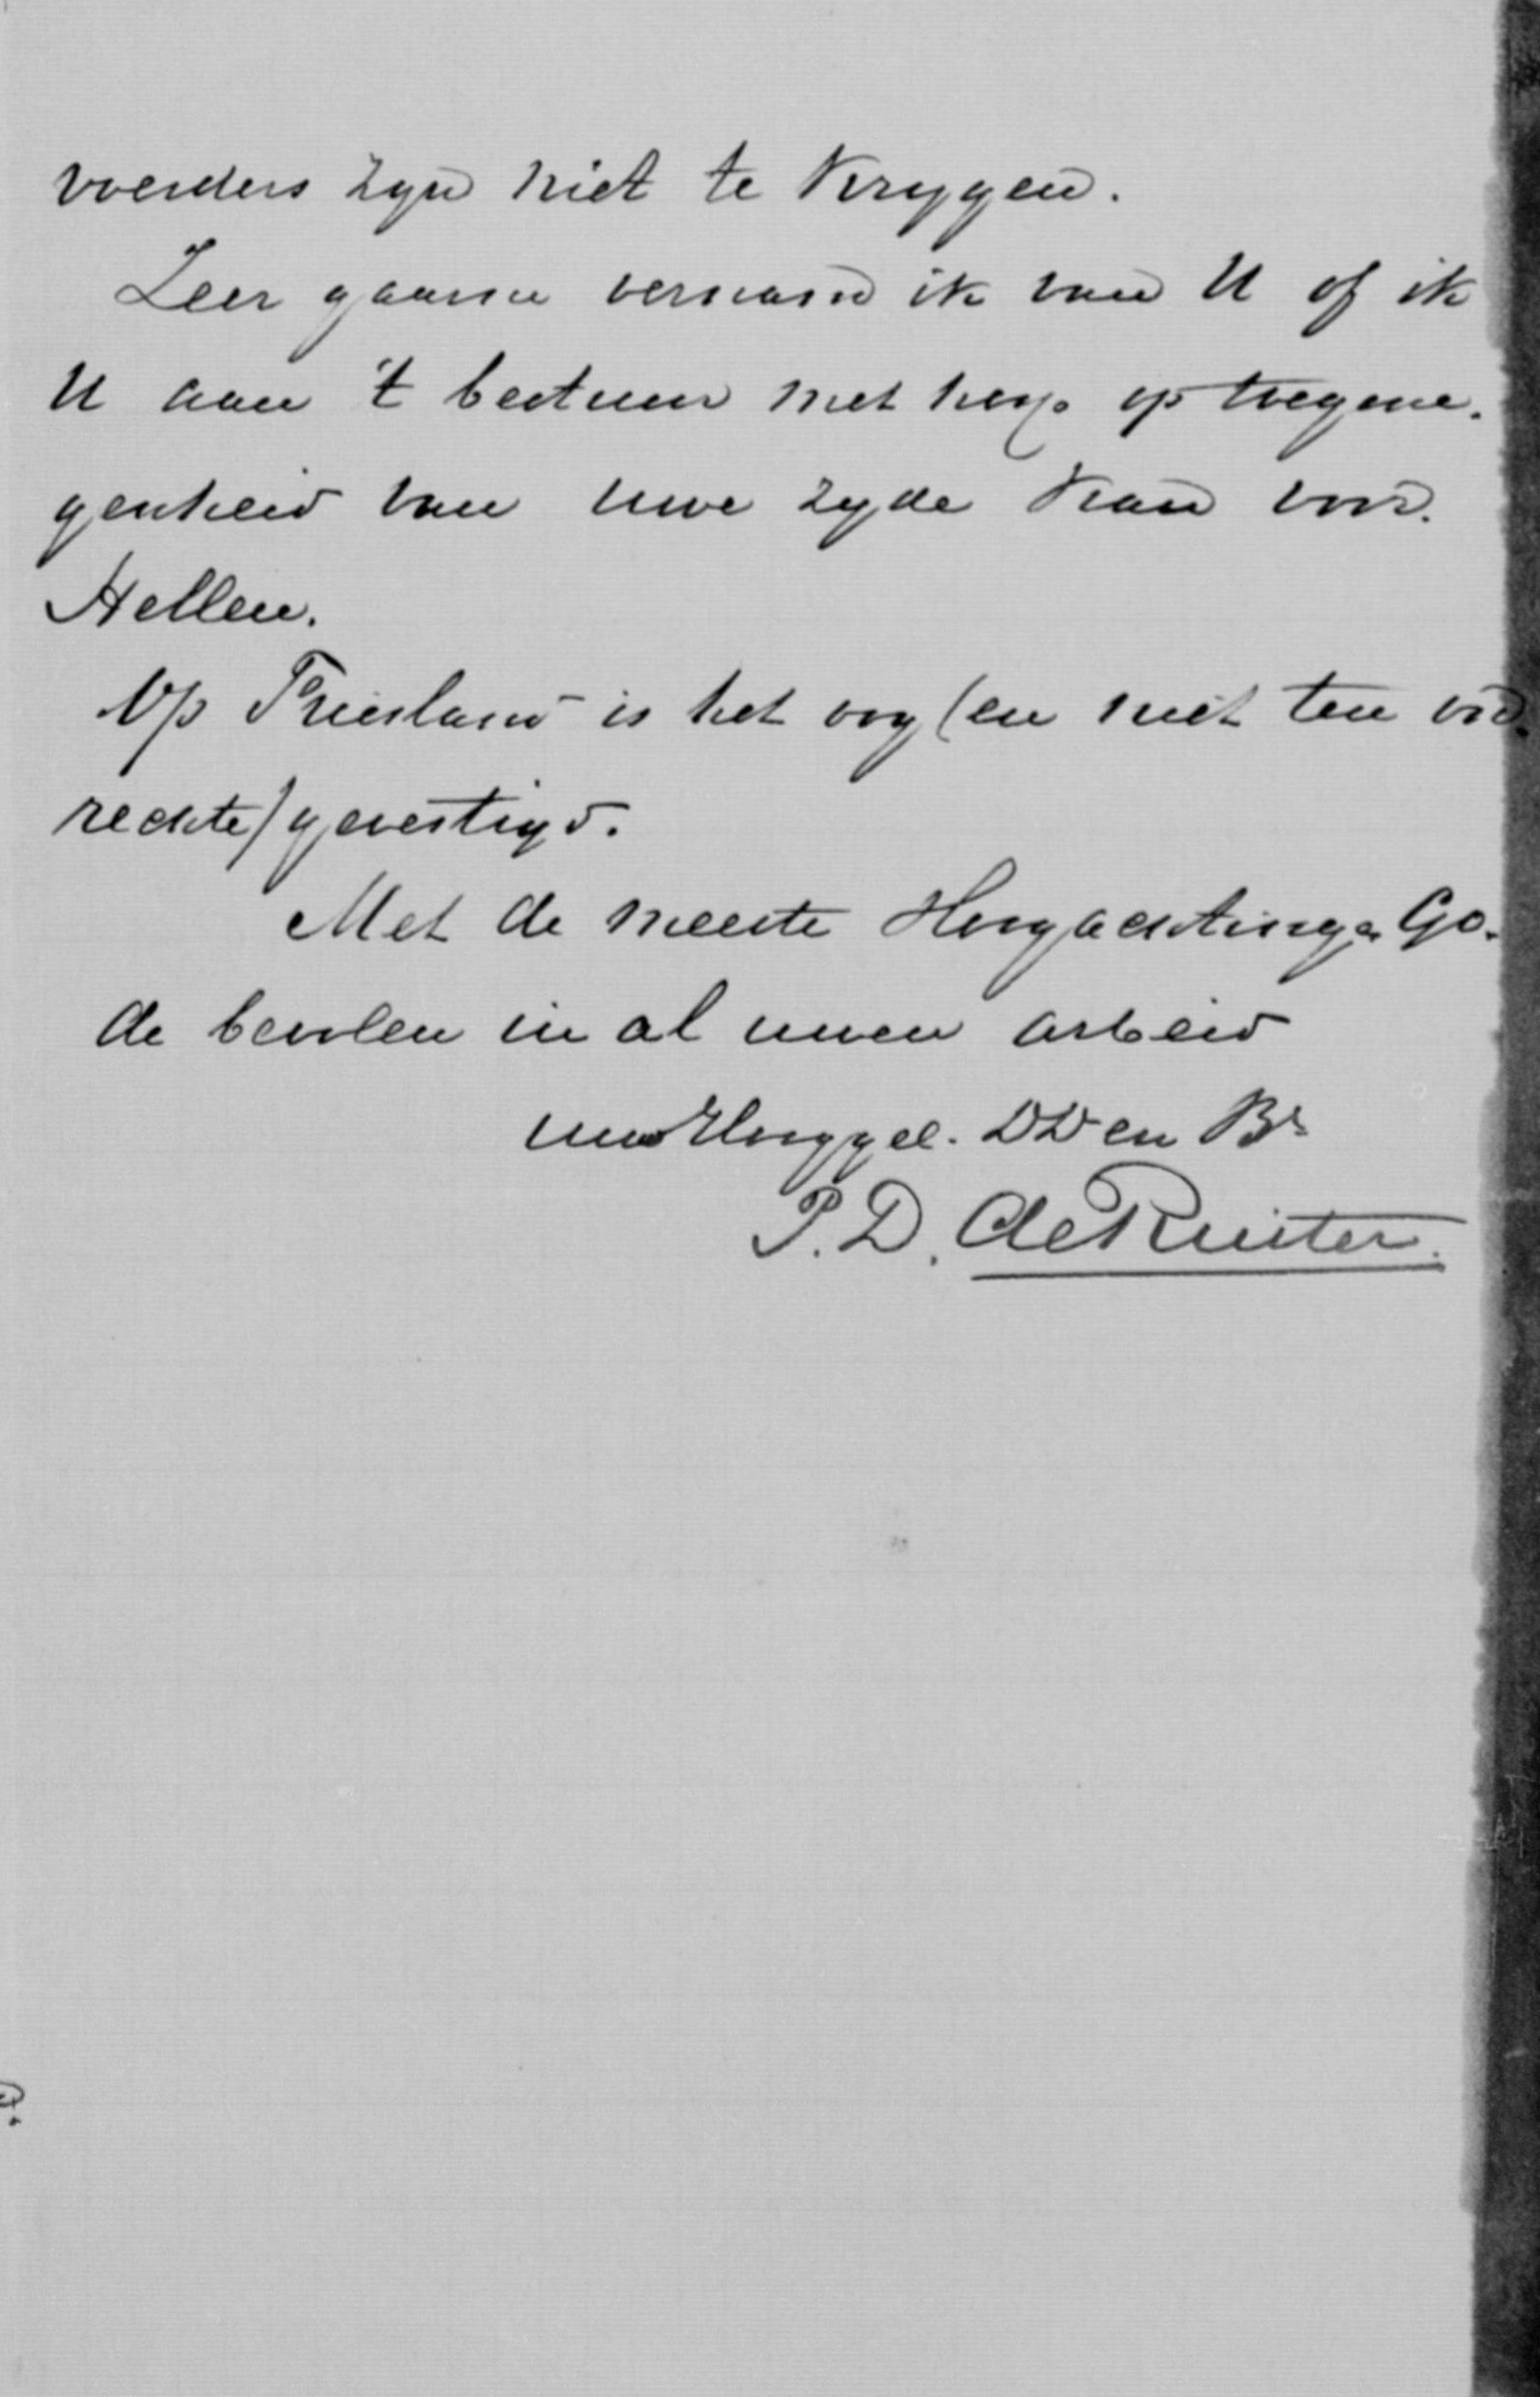 voerders zyn niet te krygen.
Zeer gaarne vernam ik van U of ik
U aan 't bestuur met hoop op toegene-
genheid van uwe zyde kan voor-
stellen.
Op Friesland is het oog (en niet ten on-
rechte) gevestigd.
Met de meeste Hoogachting & Go-
de bevolen in al uwen arbeid
uw Hooggel. DD en Br
P. D. de Ruiter.